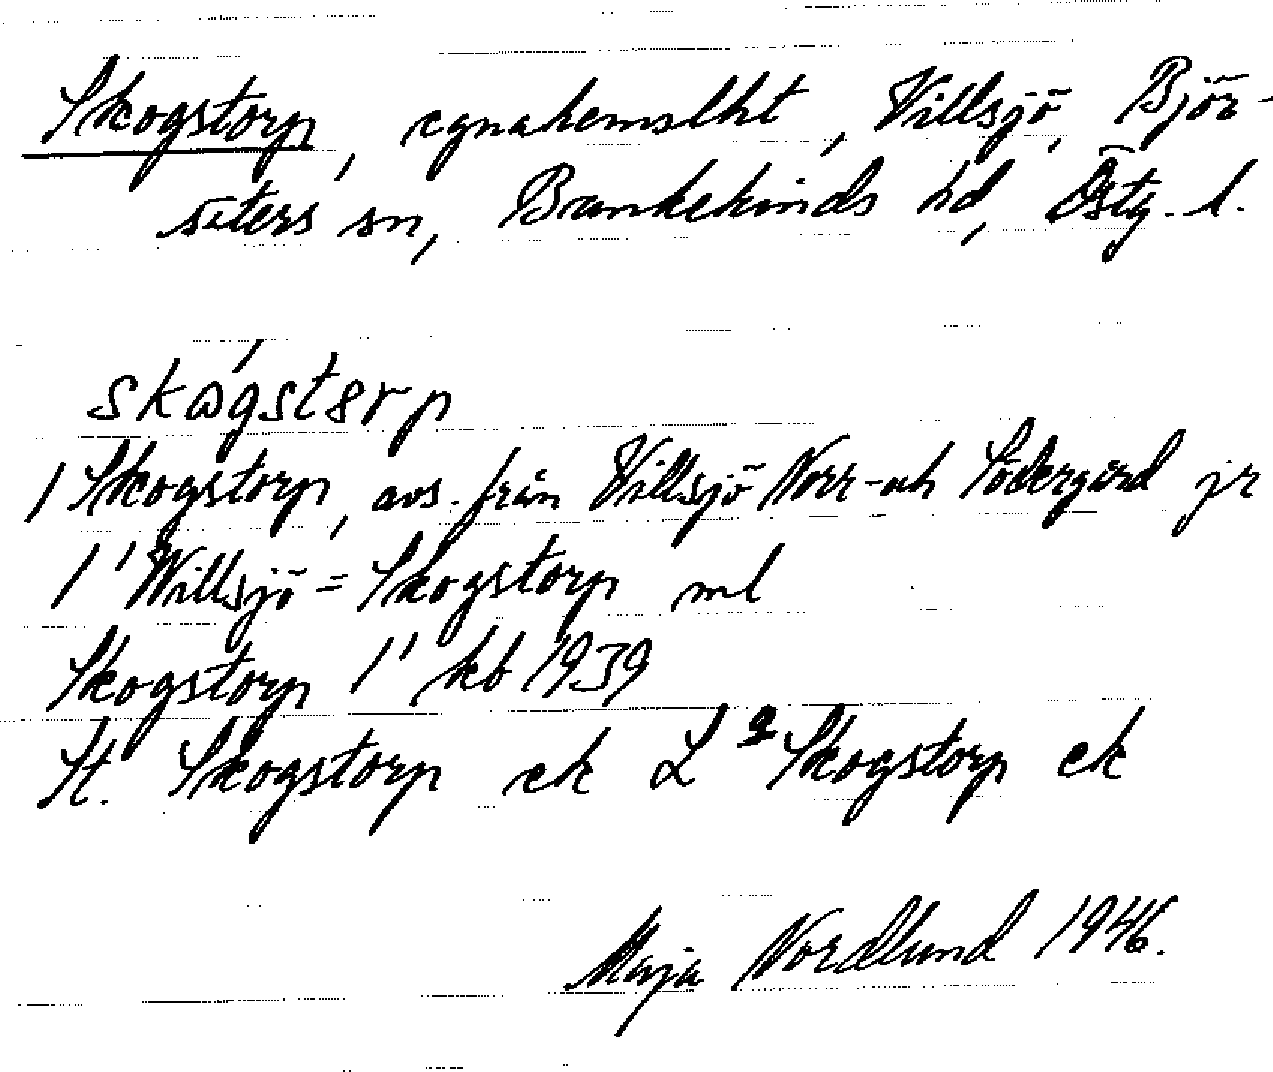 Skogstorp, egnahemslht, Villsjö, Björ-
säters sn, Bankekinds hd, Östg. l.
skωgstɜrp
1 Skogstorp, avs. från Villsjö Norr- och Södergård jr
1' Willsjö = Skogstorp ml
Skogstorp 1' kb 1939
St. Skogstorp ek L ª Skogstorp ek
Maja Nordlund 1946.